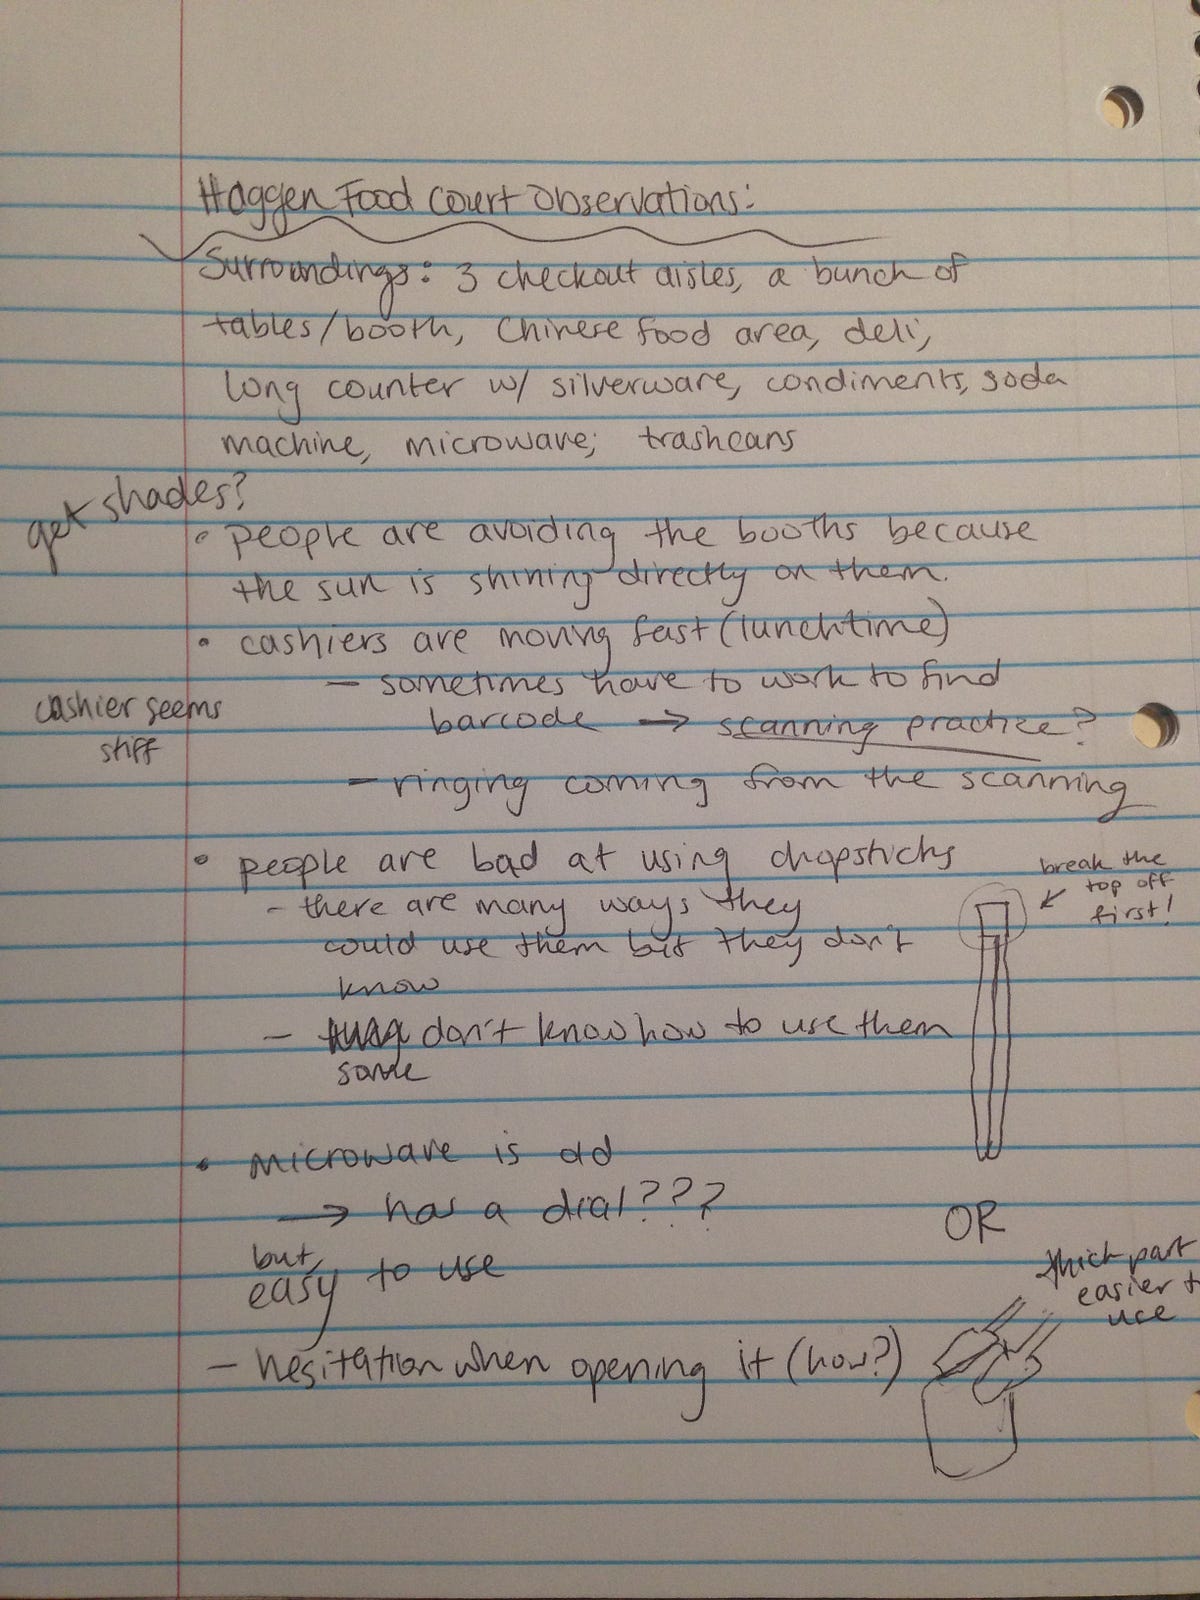 Haggen Food Court Observations:
Surroundings: 3 checkout aisles, a bunch of
tables/booth, Chinese food area, deli,
long counter w/ silverware, condiments, soda
machine, microwave; trashcans
get shades?
• people are avoiding the booths because
the sun is shining directly on them.
• cashiers are moving fast (lunchtime)
- sometimes have to work to find
barcode → scanning practice?
cashier seems
stiff
- ringing coming from the scanning
• people are bad at using chopsticks
- there are many ways they
could use them but they don't
know
- don't know how to use them
some
break the
top off
first!
• microwave is old
→ has a dial???
but,
easy to use
- hesitation when opening it (how?)
OR
thick part
easier t
use